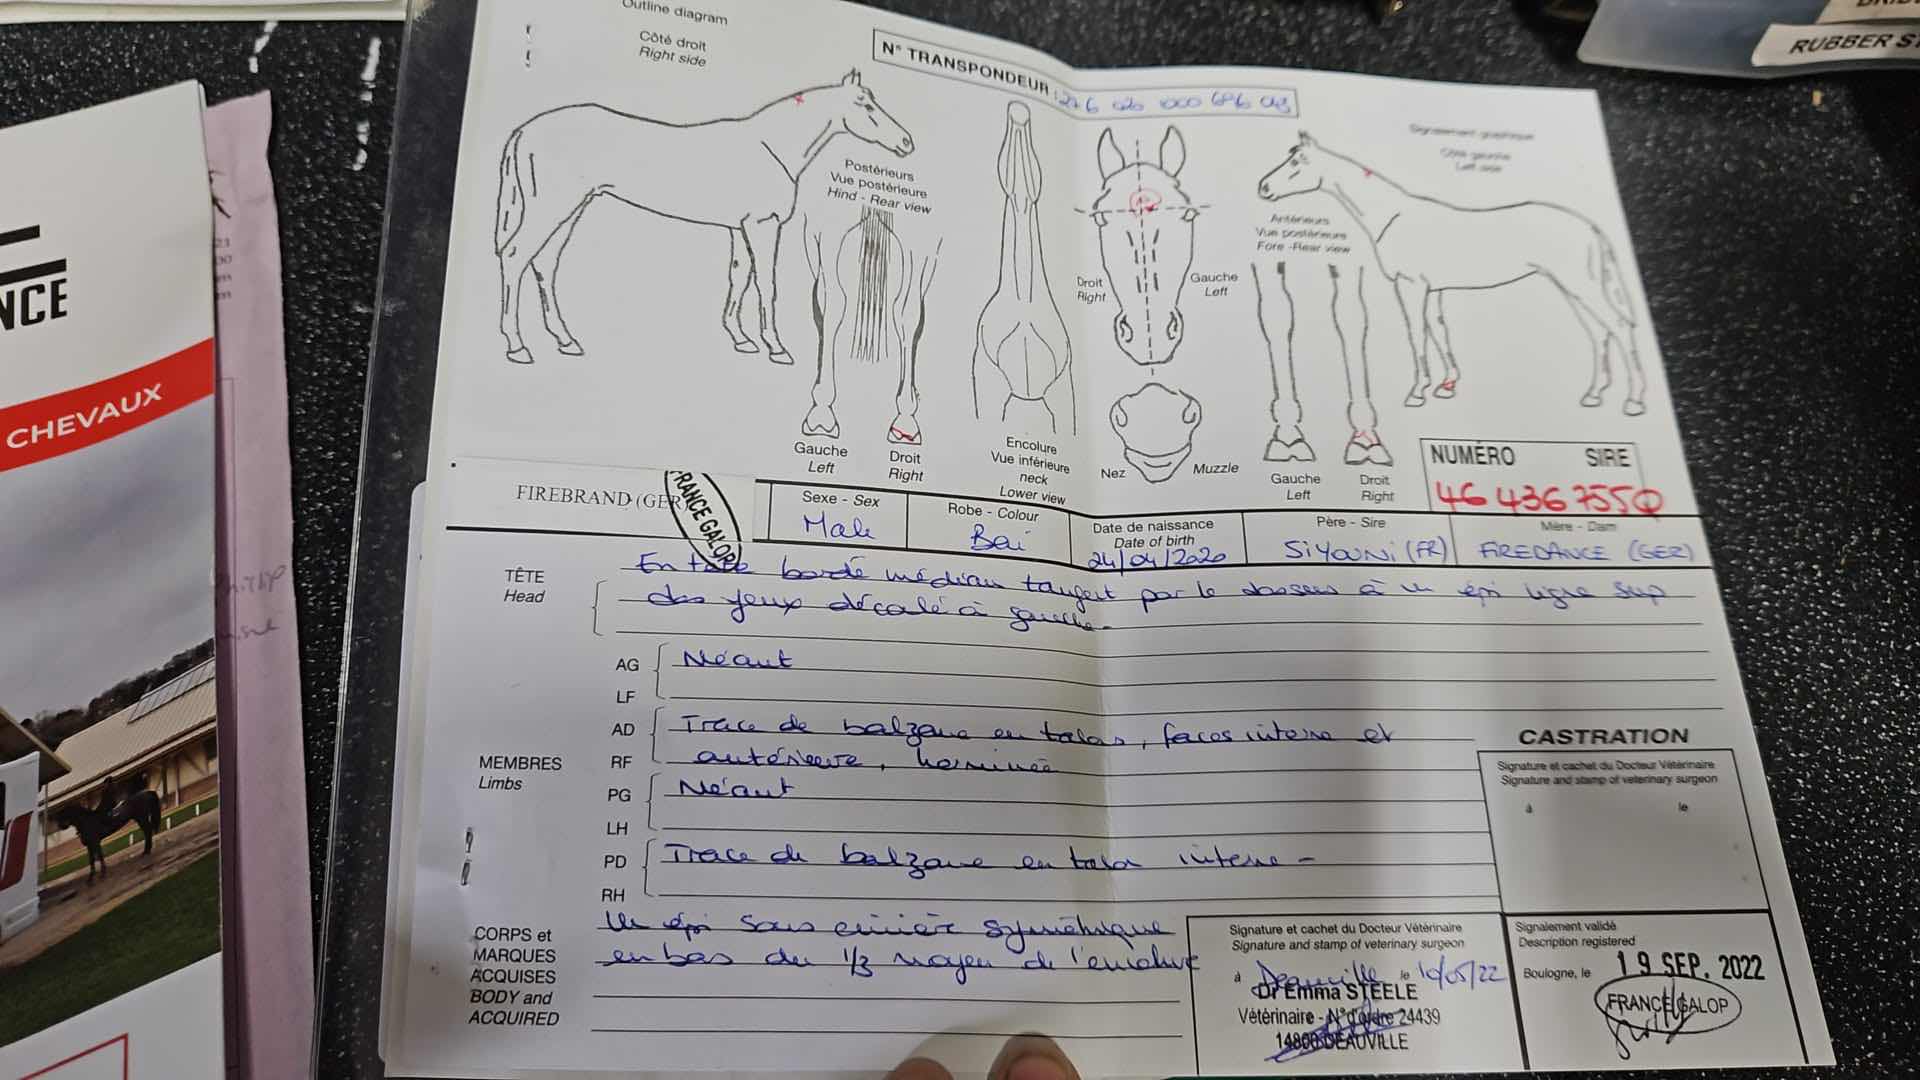 Outline diagram
Côté droit
Right side
N° TRANSPONDEUR :
RUBBER
Signalement graphique
Côté gauche
Left side
Postérieurs
Vue postérieure
Hind - Rear view
Antérieurs
Vue postérieure
Fore -Rear view
Droit
Right
Gauche
Left
Gauche
Left
Droit
Right
Encolure
Vue inférieure
neck
Lower view
Nez
Muzzle
Gauche
Left
Droit
Right
NUMÉRO SIRE
46 436 755Q
NCE
CHEVAUX
FIREBRAND (GER
FRANCE GALOP
Sexe - Sex
Male
Robe - Colour
Bai
Date de naissance
Date of birth
24/04/2020
Père - Sire
SIYOUNI (FR)
Mère - Dam
FIREDANCE (GER)
TÊTE
Head
En tête bordé médian tangent par le dessous à un épi ligne sup
des yeux décalé à gauche
AG
Néant
LF
AD
Trace de balzane en talon, faces interne et
MEMBRES
Limbs
RF
antérieure, herminée
PG
Néant
LH
PD
Trace de balzane en talon interne -
RH
CASTRATION
Signature et cachet du Docteur Vétérinaire
Signature and stamp of veterinary surgeon
à le
CORPS et
MARQUES
ACQUISES
BODY and
ACQUIRED
Un épi sous crinière symétrique
en bas du 1/3 moyen de l'encolure
Signature et cachet du Docteur Vétérinaire
Signature and stamp of veterinary surgeon
à Deauville le 10/05/22
Dr Emma STEELE
Vétérinaire - N° d'ordre 24439
14800 DEAUVILLE
Signalement validé
Description registered
Boulogne, le 19 SEP. 2022
FRANCE GALOP